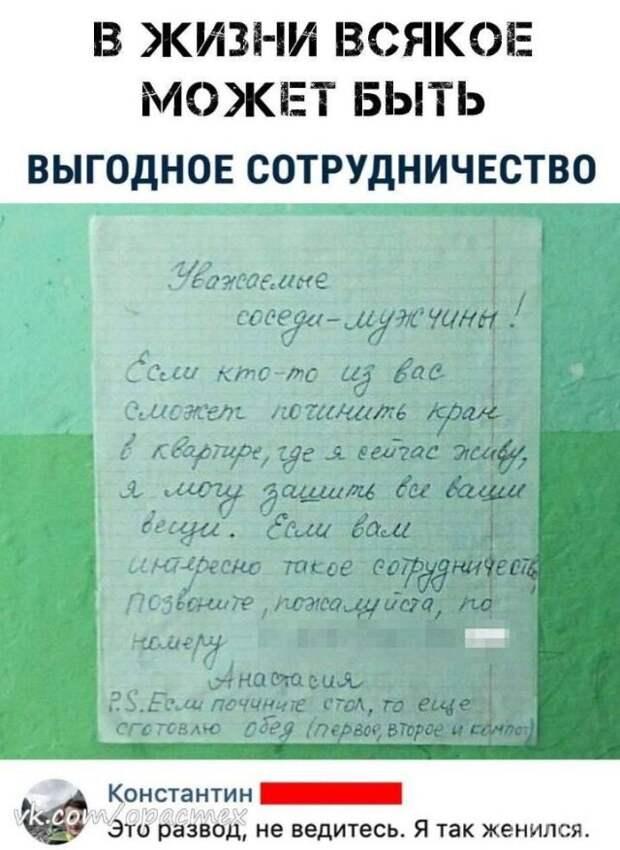 В ЖИЗНИ ВСЯКОЕ
МОЖЕТ БЫТЬ
ВЫГОДНОЕ СОТРУДНИЧЕСТВО
Уважаемые
соседи-мужчины!
Если кто-то из вас
сможет починить кран
в квартире, где я сейчас живу,
я могу зашить все ваши
вещи. Если вам
интересно такое сотрудничеств
позвоните, пожалуйста, по
номеру
Анастасия
P.S. Если почините стол, то еще
сготовлю обед (первое, второе и компот)
Константин
vk.com/opacmex
Это развод, не ведитесь. Я так женился.